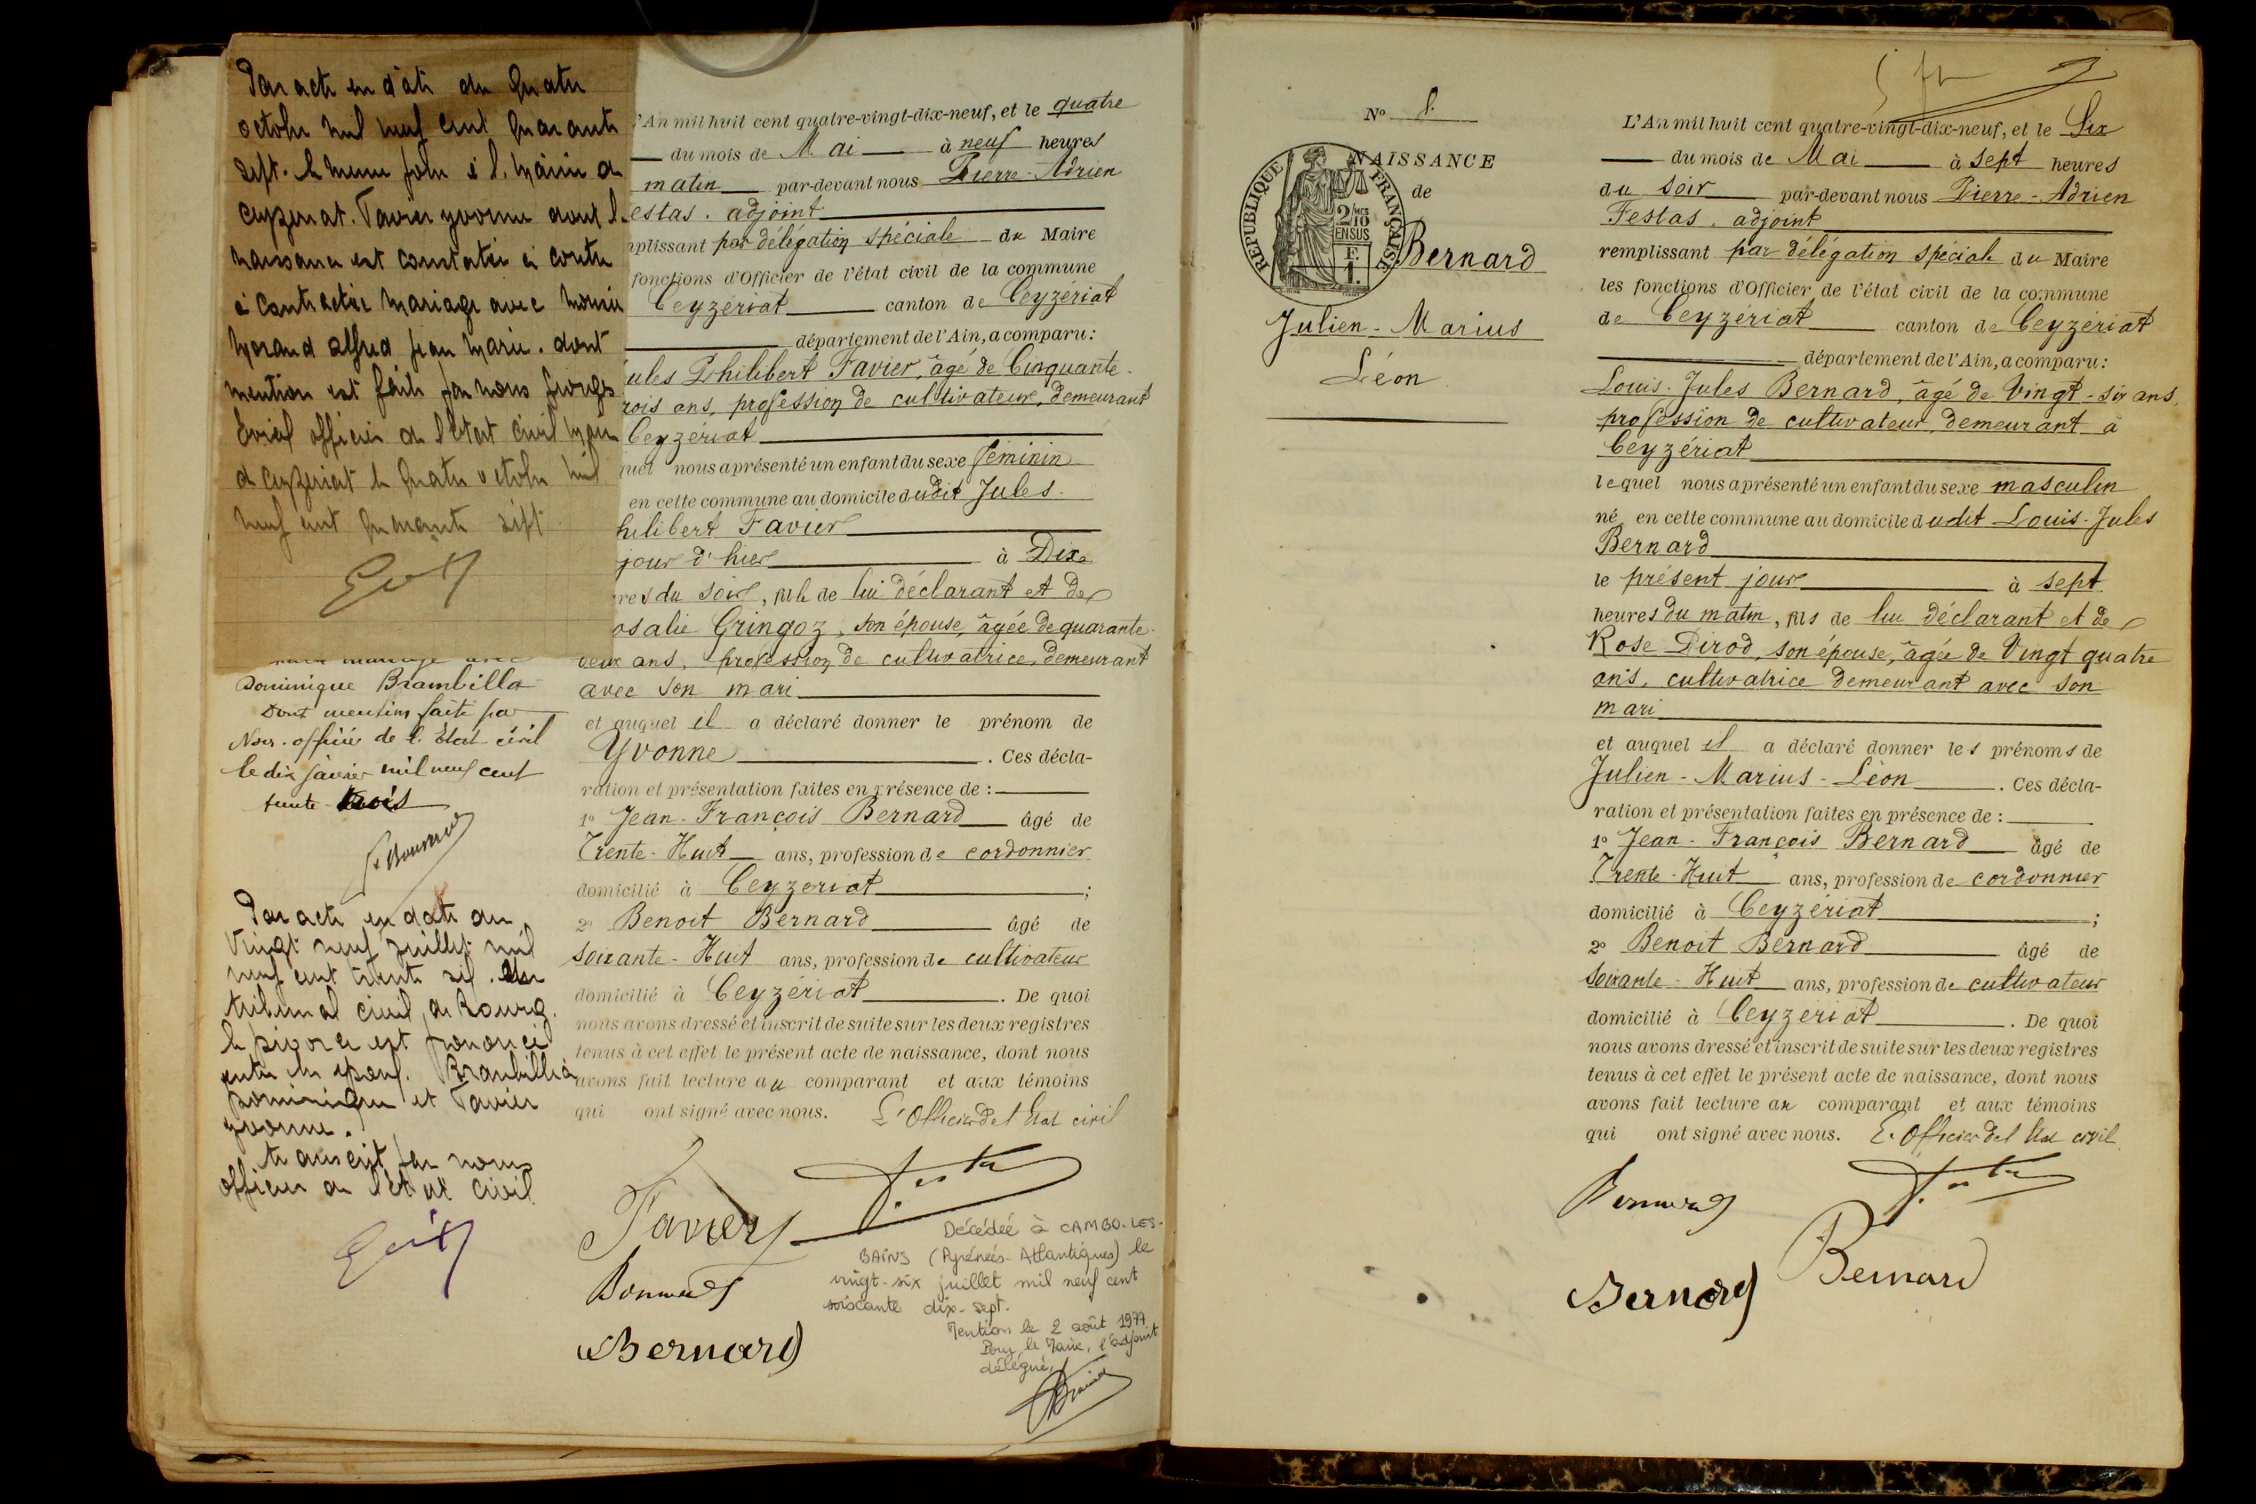 Par acte en date du quatre
octobre mil neuf cent quarante
sept. le meme jour à la mairie de
ceyzeriat. Favier yvonne dont la
naissance est constatée ci contre
à contractée mariage avec
Morand alfred jean marie. dont
mention est faite par nous
officier de l'état civil
de ceyzeriat le quatre octobre mil
neuf cent quarante sept
mariage avec
Dominique Brambilla
Dont mention faite par
Nous. officier de l'Etat civil
le dix janvier mil neuf cent
trente-trois
Par acte en date du
Vingt neuf juillet mil
neuf cent trente six. du
tribunal civil de Bourg.
le divorce est prononcé
entre les époux. Brambillia
Dominique et Favier
yvonne.
transcrit par nous
officier de l'état civil
L'An mil huit cent quatre-vingt-dix-neuf, et le quatre
du mois de Mai à neuf heures
matin par-devant nous Pierre-Adrien
estas. adjoint
mplissant par délégation spéciale du Maire
fonctions d'Officier de l'état civil de la commune
Ceyzériat canton de Ceyzériat
département de l'Ain, a comparu:
ules Philibert Favier, âgé de Cinquante-
rois ans, profession de cultivateur, demeurant
Ceyzériat
quel nous a présenté un enfant du sexe féminin
en cette commune au domicile dudit Jules-
hilibert Favier
jour d'hier à Dix
res du soir, fille de lui déclarant et de
osalie Gringoz, son épouse, âgée de quarante-
deux ans, profession de cultivatrice, demeurant
avec son mari
et auquel il a déclaré donner le prénom de
Yvonne. Ces décla-
ration et présentation faites en présence de :
1° Jean-François Bernard âgé de
Trente-Huit ans, profession de cordonnier
domicilié à Ceyzeriat ;
2° Benoit Bernard âgé de
soixante-Huit ans, profession de cultivateur
domicilié à Ceyzériat. De quoi
nous avons dressé et inscrit de suite sur les deux registres
tenus à cet effet le présent acte de naissance, dont nous
avons fait lecture au comparant et aux témoins
qui ont signé avec nous. L'Officier de l'Etat civil
Favier
Bernard
Bernard
Décédée à CAMBO-LES-
BAINS (Pyrénées-Atlantiques) le
vingt-six juillet mil neuf cent
soixante dix-sept.
Mention le 2 août 1977
Pour le Maire, l'adjoint
délégué,
N° 8.
NAISSANCE
de
RÉPUBLIQUE FRANÇAISE
2/10 EN SUS
Bernard
Julien-Marius
Léon
L'An mil huit cent quatre-vingt-dix-neuf, et le Six
du mois de Mai à sept heures
du soir par-devant nous Pierre-Adrien
Festas. adjoint
remplissant par délégation spéciale du Maire
les fonctions d'Officier de l'état civil de la commune
de Ceyzériat canton de Ceyzériat
département de l'Ain, a comparu:
Louis-Jules Bernard, âgé de Vingt-six ans,
profession de cultivateur, demeurant à
Ceyzériat
lequel nous a présenté un enfant du sexe masculin
né en cette commune au domicile dudit Louis-Jules
Bernard
le présent jour à sept
heures du matin, fils de lui déclarant et de
Rose Dirod, son épouse, âgée de Vingt quatre
ans, cultivatrice demeurant avec son
mari
et auquel il a déclaré donner les prénoms de
Julien-Marius-Léon. Ces décla-
ration et présentation faites en présence de :
1° Jean-François Bernard âgé de
Trente-Huit ans, profession de cordonnier
domicilié à Ceyzériat ;
2° Benoit Bernard âgé de
soixante-Huit ans, profession de cultivateur
domicilié à Ceyzériat. De quoi
nous avons dressé et inscrit de suite sur les deux registres
tenus à cet effet le présent acte de naissance, dont nous
avons fait lecture au comparant et aux témoins
qui ont signé avec nous. L'Officier de l'Etat civil
Bernard
Bernard
Bernard